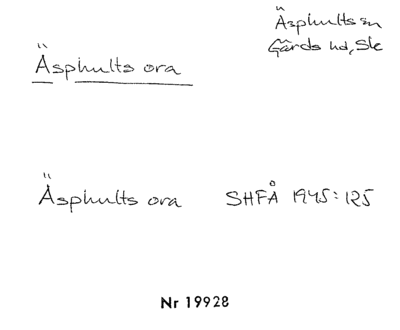 Äsphults sn
Gärds hd, Sk
Äsphults ora
Äsphults ora SHFÅ 1945:125
Nr 19928